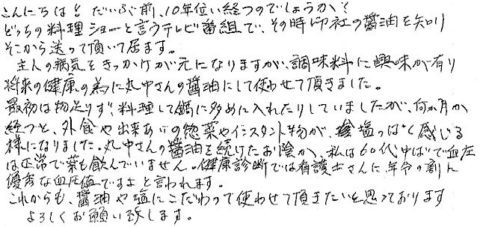 こんにちは！だいぶ前、10年位い経つのでしょうか？
どっちの料理ショーと言うテレビ番組で、その時御社の醤油を知り
そこから送って頂いて居ます。
主人の病気をきっかけが元になりますが、調味料に興味が有り
将来の健康の為に丸中さんの醤油にして使わせて頂きました。
最初は物足りず、料理して鍋に多めに入れたりしていましたが、何ヵ月か
経つと、外食や出来あいの惣菜やインスタント物が、塩っぱく感じる
様になりました。丸中さんの醤油を続けたお陰か、私は60代中ばで血圧
は正常で薬も飲んでいません。健康診断では看護士さんに年令の割に
優秀な血圧値ですよと言われます。
これからも、醤油や塩にこだわって使わせて頂きたいと思っております
よろしくお願い致します。